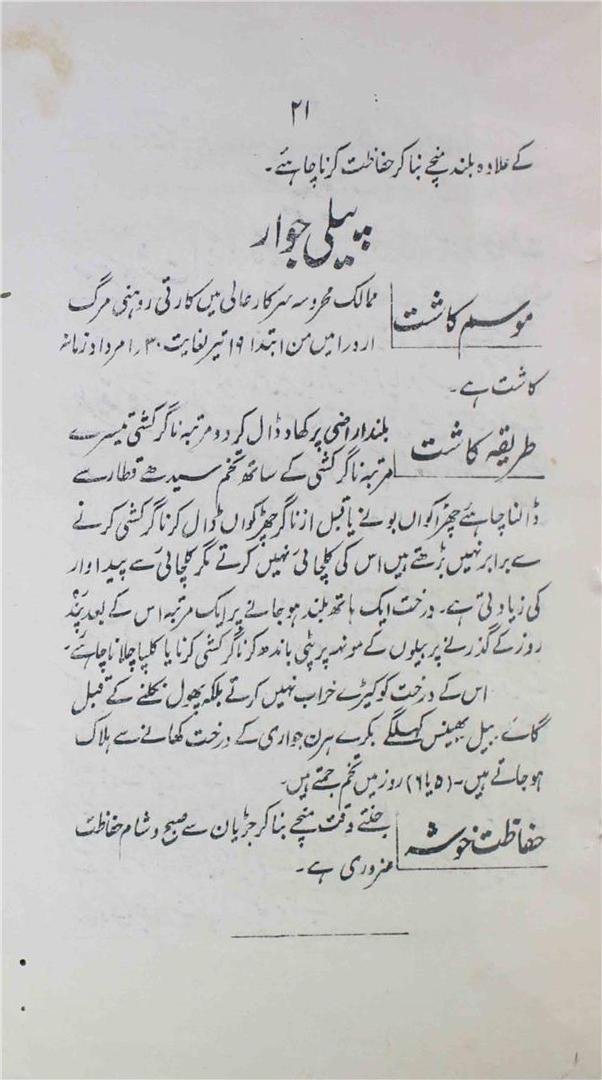 ۲۱
کے علاوہ بلند منچے بنا کر حفاظت کرنا چاہئے۔
پیلی جوار
موسم کاشت
ممالک محروسہ سرکار عالی میں کارتی روہنی مرگ
اردرا میں من ابتدا ۱۹ تیر لغایت ۳۰ امرداد زمانہ
کاشت ہے۔
طریقہ کاشت
بلند اراضی پر کھاد ڈال کر دو مرتبہ ناگر کشی تیسرے
مرتبہ ناگر کشی کے ساتھ تخم سیدھے قطار سے
ڈالنا چاہئے چھڑاکواں بونے یا قبل از ناگر چھڑکواں ڈوال کر ناگر کشی کرنے
سے برابر نہیں بڑھتے ہیں اس کی کلچائی نہیں کرتے مگر کلچائی سے پیداوار
کی زیادتی ہے۔ درخت ایک ہاتھ بلند ہو جانے پر ایک مرتبہ اس کے بعد چند
روز کے گذرنے پر بیلوں کے مونہہ پر پٹی باندھ کر ناگر کشی کرنا یا کلپا چلانا چاہئے۔
اس کے درخت کو کیڑے خراب نہیں کرتے بلکہ پھول نکلنے کے قبل
گائے بیل بھینس کہلگے بکرے ہرن جواری کے درخت کھانے سے ہلاک
ہو جاتے ہیں۔ (۵ یا ۶) روز میں تخم جمتے ہیں۔
حفاظت خوشہ
جنتے وقت منچے بنا کر چڑیان سے صبح و شام حفاظت
ضروری ہے۔